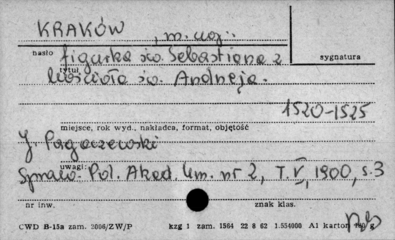 KRAKÓW, m. woj.:
hasło figurka św. Sebastiana z
tytuł sygnatura
kościoła św. Andrzeja.
1520-1525
miejsce, rok wyd., nakładca, format, objętość
J. Pagaczewski
uwagi
Spraw. Pol. Akad. Um. nr 2, T. V, 1900, s. 3
nr inw. znak klas.
CWD B-15a zam. 2006/ZW/P kzg 1 zam. 1564 22 8 62 1.554000 A1 karton